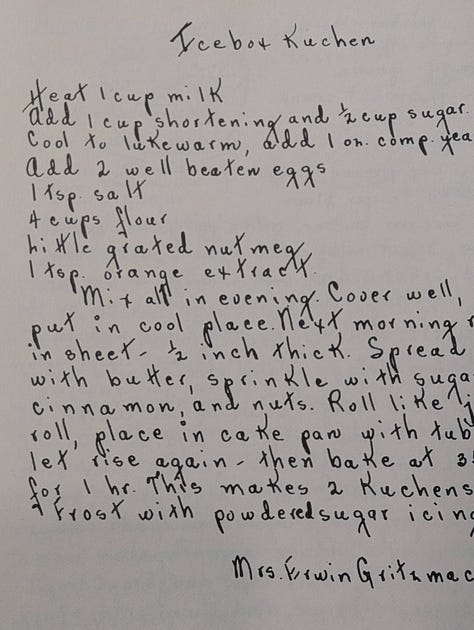 Icebox Kuchen
Heat 1 cup milk
Add 1 cup shortening and ½ cup sugar.
Cool to lukewarm, add 1 on. comp. yea
Add 2 well beaten eggs
1 tsp. salt
4 cups flour
little grated nutmeg
1 tsp. orange extract.
Mix all in evening. Cover well,
put in cool place. Next morning
in sheet - ½ inch thick. Spread
with butter, sprinkle with suga
cinnamon, and nuts. Roll like
roll, place in cake pan with tub
let rise again - then bake at 3
for 1 hr. This makes 2 Kuchens
Frost with powdered sugar icing
Mrs. Erwin Gritzmac